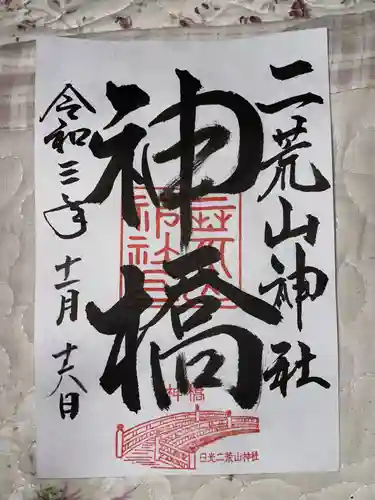 二荒山神社
神橋
令和三年
十一月
十六日
神橋
日光二荒山神社